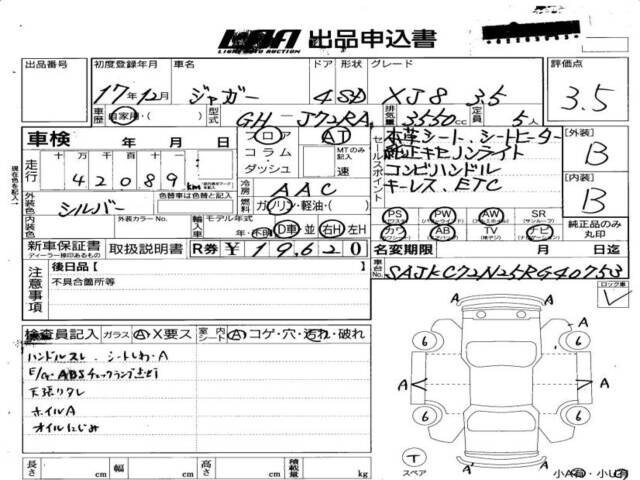 LAA 出品申込書
LIGHT AUTO AUCTION
出品番号 初度登録年月 車名 ドア 形状 グレード 評価点
17年12月 ジャガー 4 SD XJ8 3.5 3.5
車歴 自家用・( ) 型式 GH-J72RA 排気量 3550cc 定員 5人
車検 年 月 日 フロア コラム・ダッシュ AT MTのみ記入 速
セールスポイント 本革シート、シートヒーター
純正キセノンライト
コンビハンドル
キーレス、ETC
[外装] B
[内装] B
走行 十万 千 百 十 一
42089 km
現在色を記入
色替車は色替と記入
冷房 AAC
燃料 ガソリン・軽油・( )
外装色 シルバー
内装色 外装カラーNo. 輸入車 モデル年式 年・不明 D車・並 右H・左H
PS PW AW SR (サンルーフ)
カワ AB TV ナビ
純正品のみ丸印
新車保証書 取扱説明書 R券 ¥19,620 名変期限 月 日迄
ディーラー捺印あるもの
車台No. SAJKC72N25RG40753
ロック車
注意事項 後日品【 】
不具合箇所等
検査員記入 ガラス A・X要ス 室内シート A・コゲ・穴・汚れ・破れ
ハンドルスレ、シートしわ・A
E/G・ABSチェックランプ点灯
天張りタレ
ホイルA
オイルにじみ
A
A
6 6
A A
6 6
A
T
スペア
長さ cm 幅 cm 高さ cm 積載量 kg
小A有・小U有